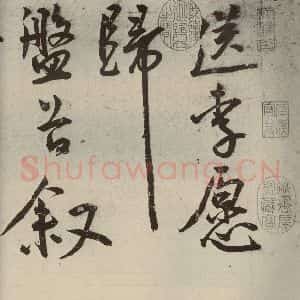 送李愿
歸
盤谷叙
Shufawang.CN